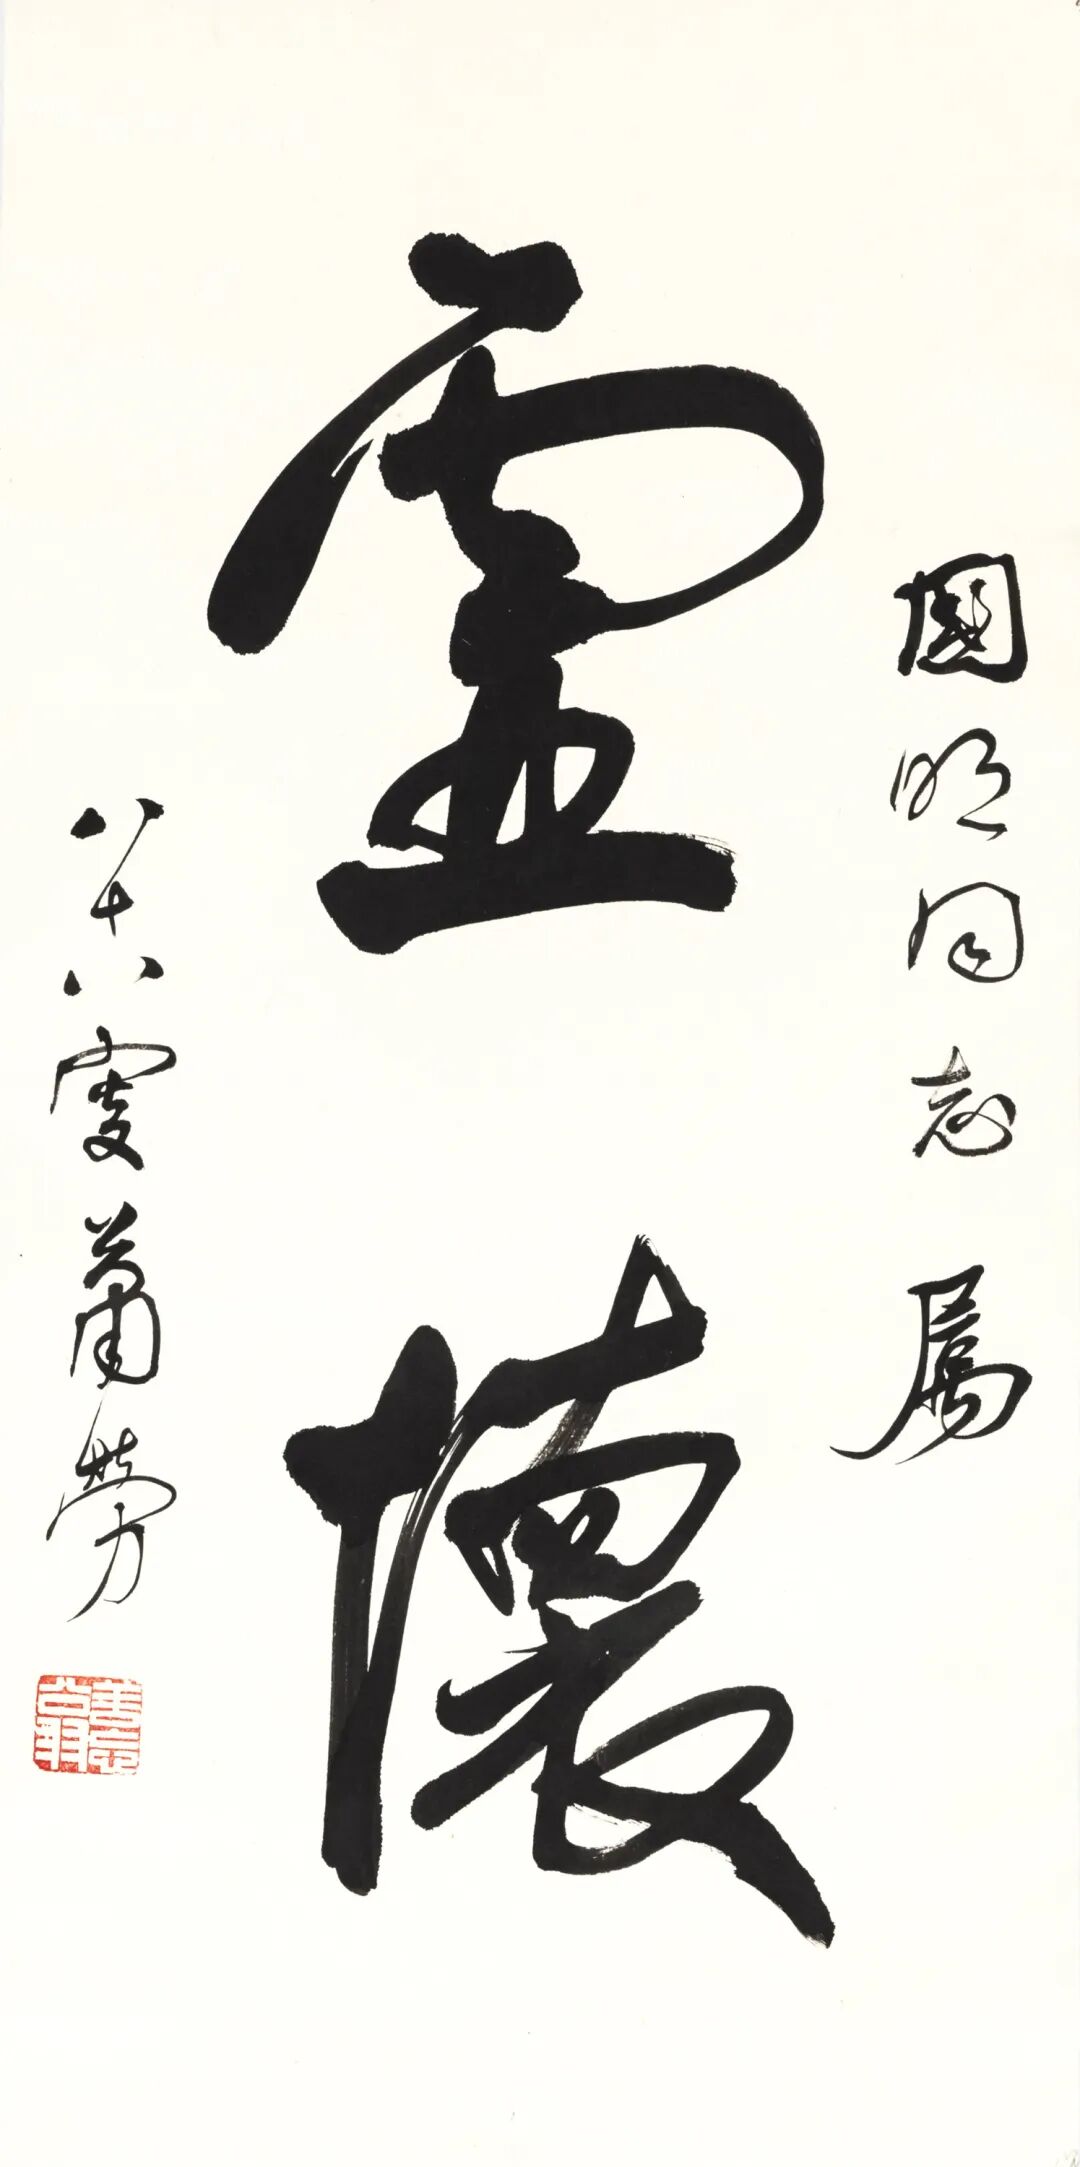 國明同志屬
虛懷
八十八叟蕭勞
善忘翁